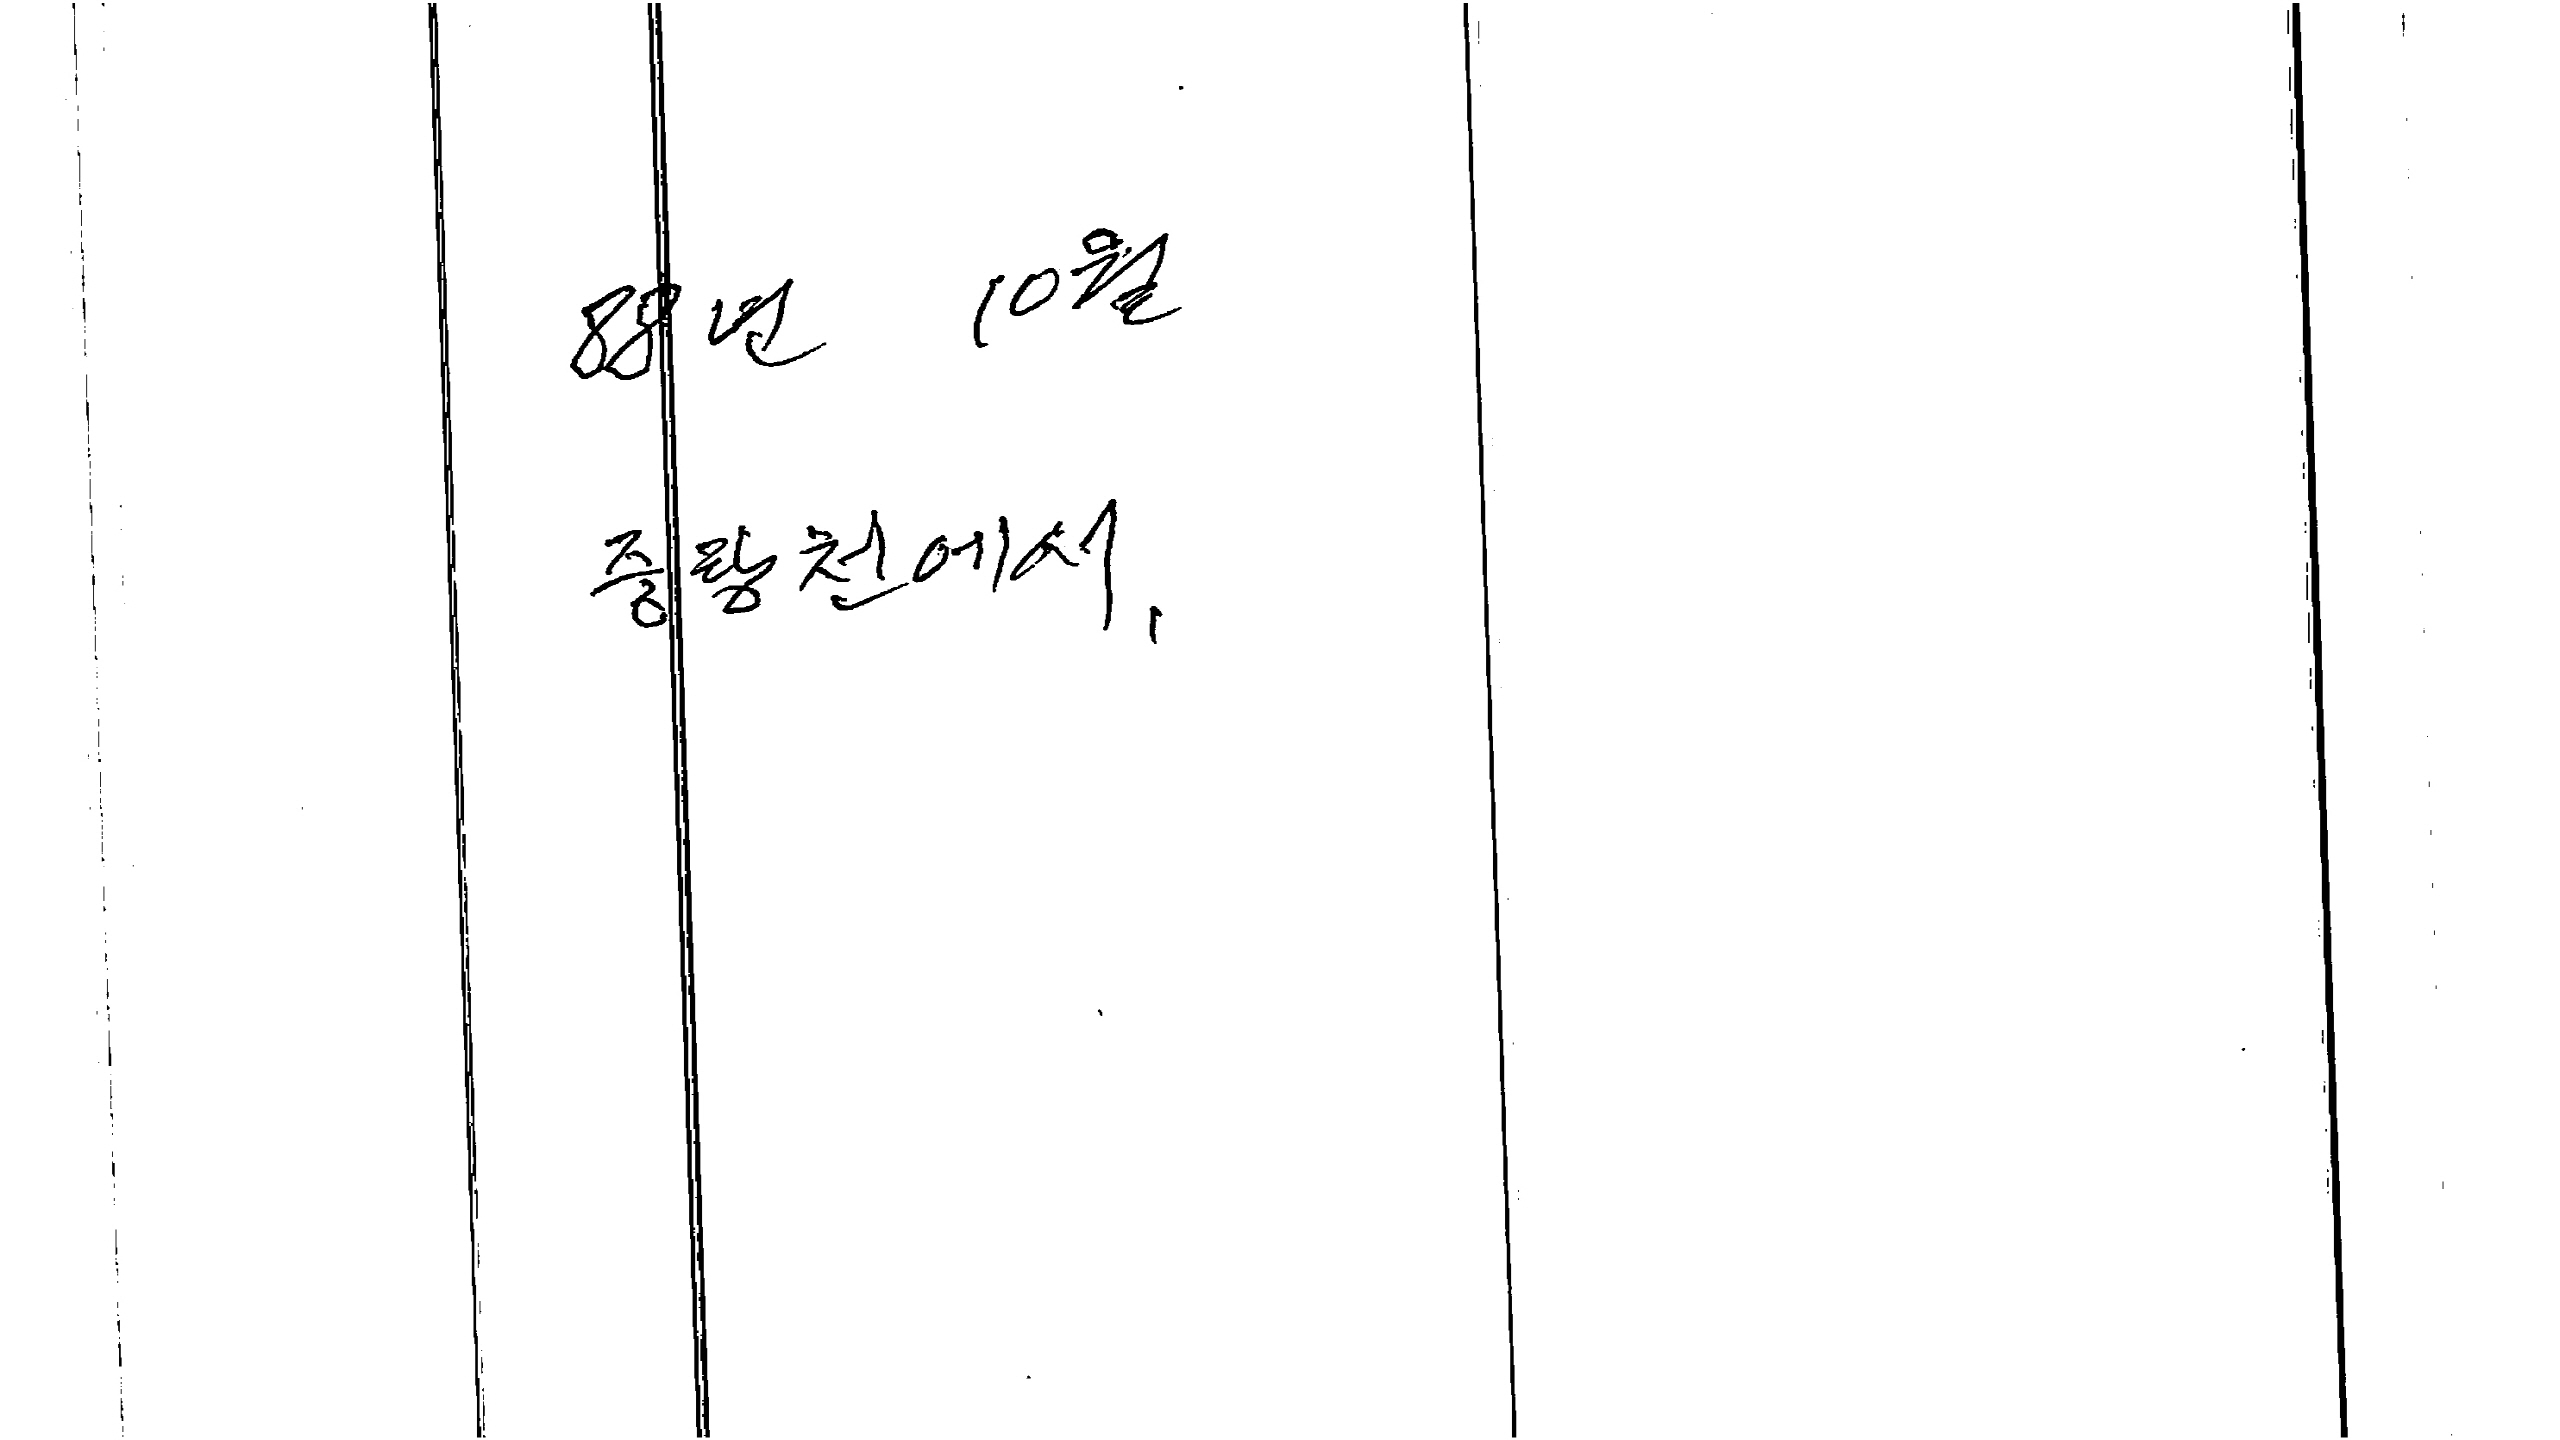 88년 10월
중랑천에서.